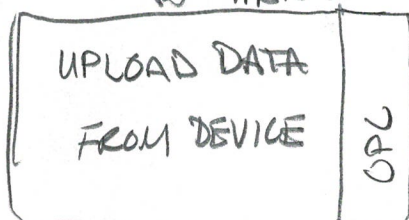 UPLOAD DATA
FROM DEVICE
OPL